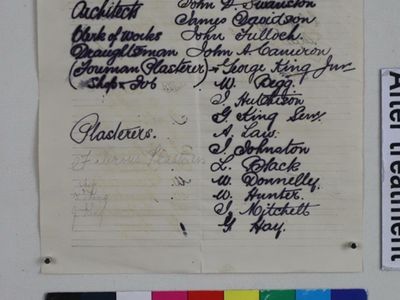 Architects John D. Swanston
James Davidson
Clerk of Works John Tulloch
Draughtsman John A. Cameron
(Fourman Plasterer) George King Junr
Shop & Job W. Begg.
J Hutchison
G King Senr.
Plasterers. A. Law.
J Johnston
L. Black
W. Donnelly.
W. Hunter.
J Mitchell
G Hay.
After treatment